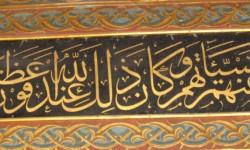 سيئاتهم وكان ذلك عند الله فوزا